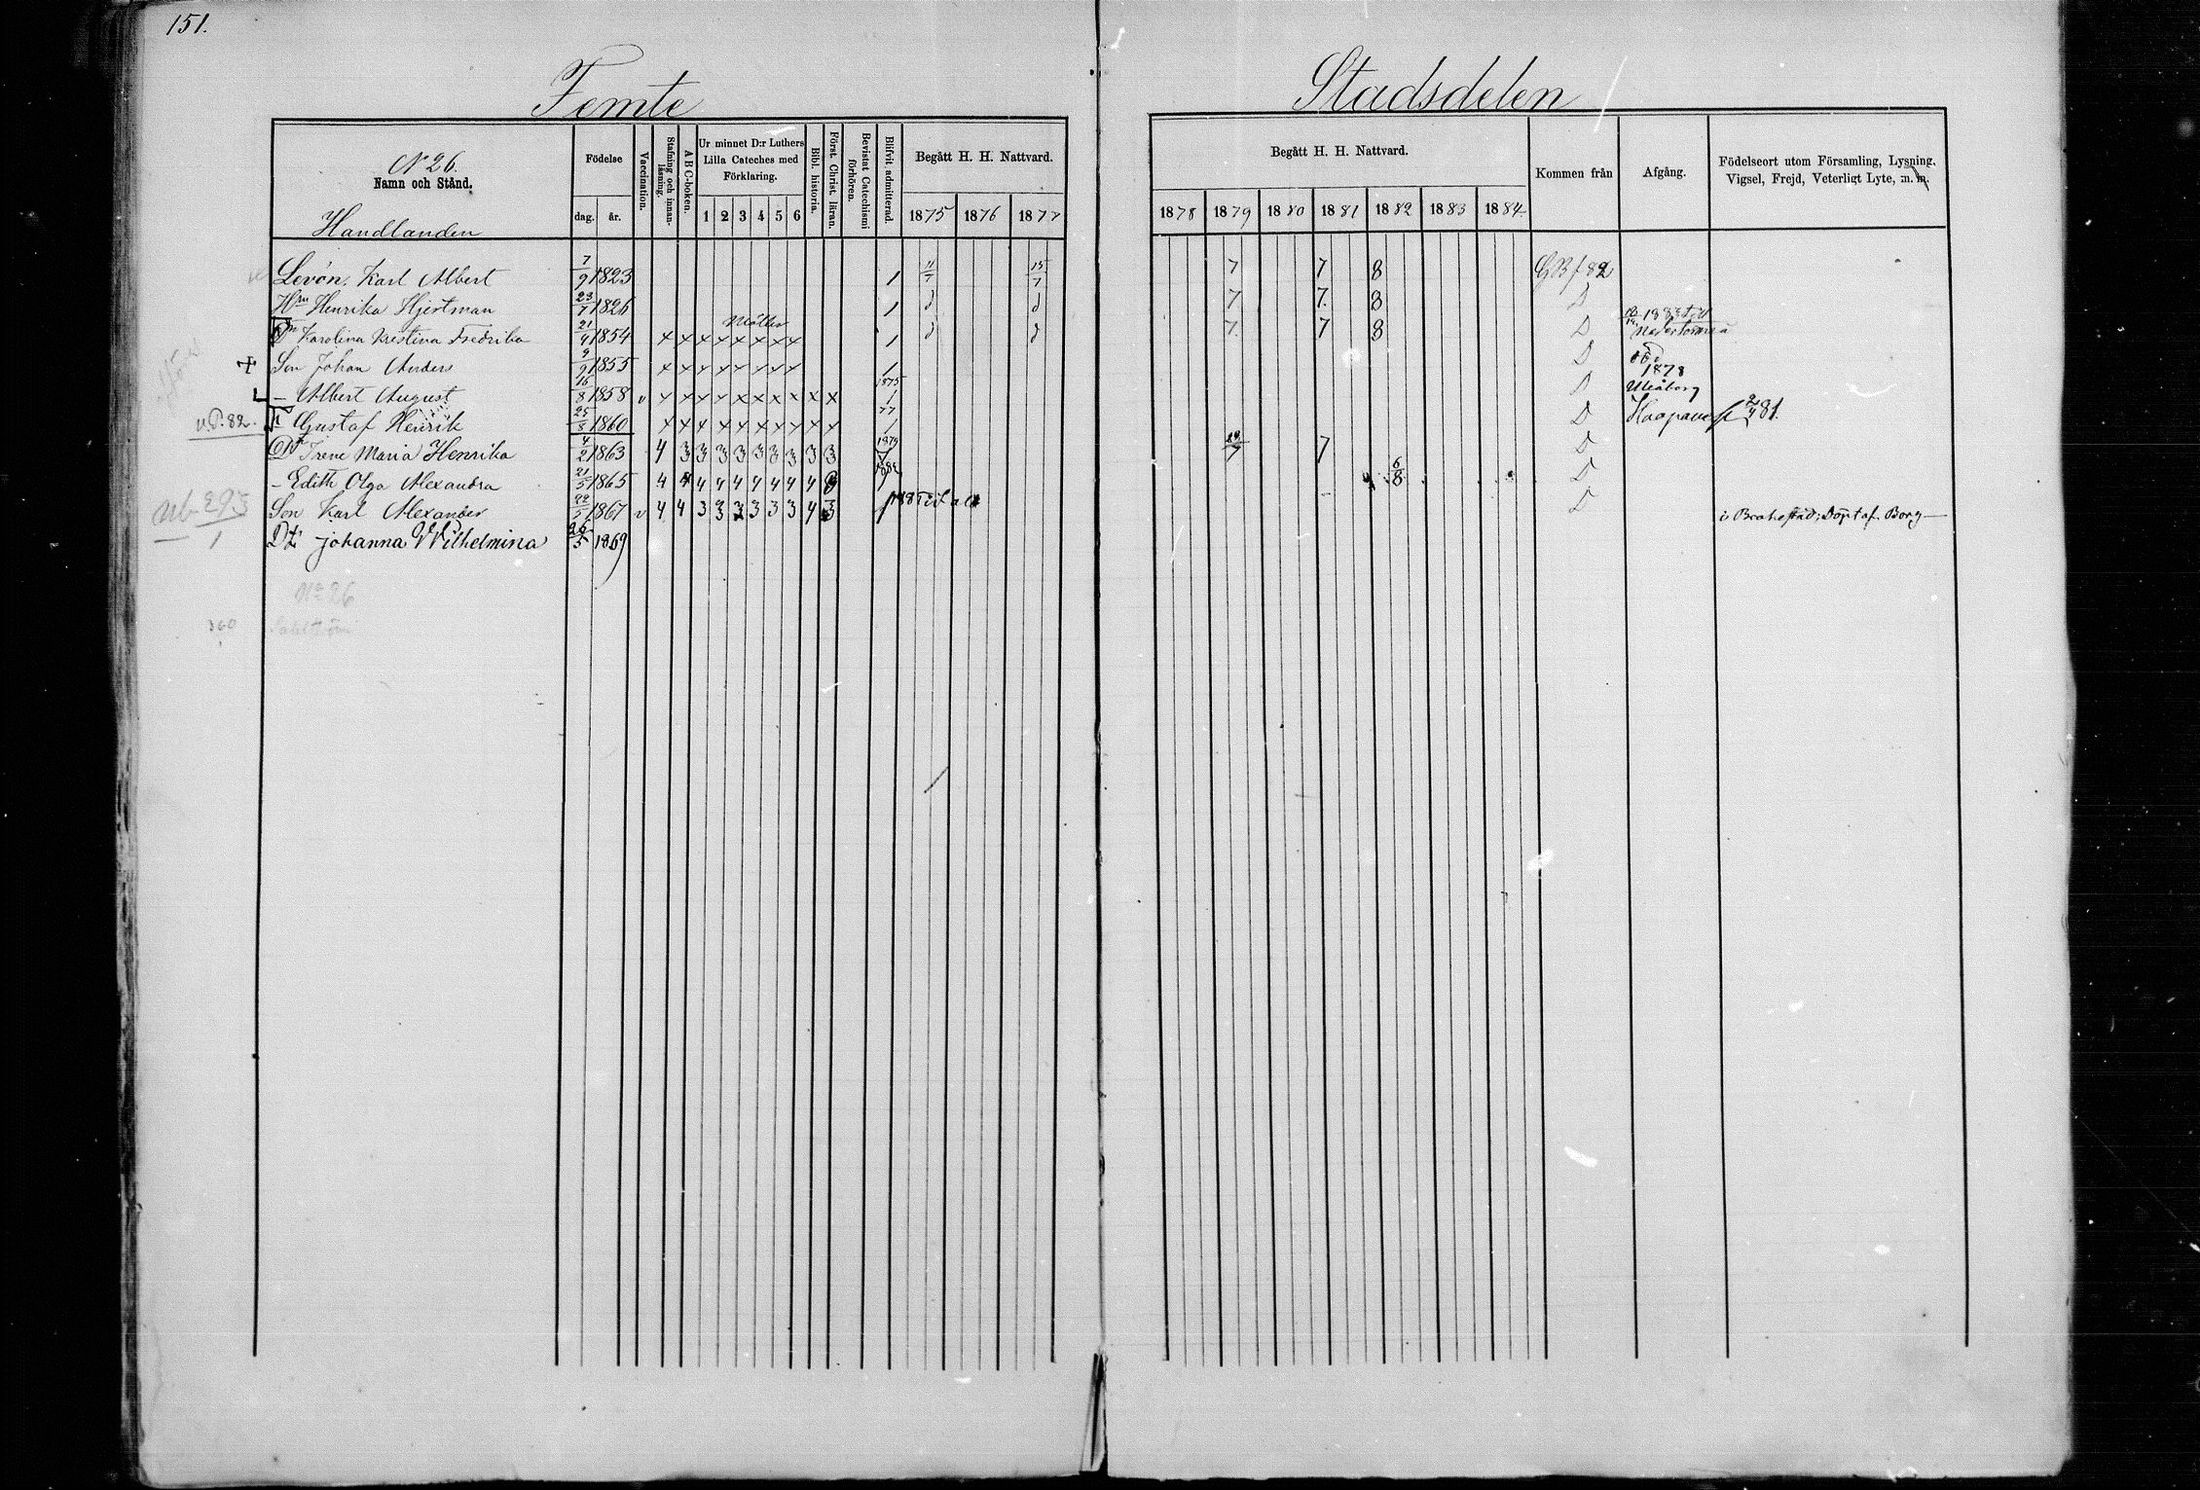 151.
Femte Stadsdelen
N 26.
Namn och Stånd.
Födelse
dag. år.
Vaccination.
Stafning och innan-läsning.
A B C-boken.
Ur minnet D:r Luthers
Lilla Cateches med
Förklaring.
1 2 3 4 5 6
Bibl. historia.
Först. Christ. läran.
Bevistat Catechismi förhören.
Blifvit admitterad.
Begått H. H. Nattvard.
1875 1876 1877
Begått H. H. Nattvard.
1878 1879 1880 1881 1882 1883 1884
Kommen från
Afgång.
Födelseort utom Församling, Lysning,
Vigsel, Frejd, Veterligt Lyte, m. m.
Handlanden
Levón, Karl Albert 7/9 1823 1 11/7 15/7 7 7 8 GB f 82
Hu Henrika Hjertman 23/7 1826 1 7 7 8 D
Möller
Karolina Kristina Fredrika 21/4 1854 x x x x x x x x 1 7 7 8 D Nedertorneå
Son Johan Anders 9/9 1855 x x x x x x x x 1 D
– Albert August 16/8 1858 v x x x x x x x x x x 1875 D 1878 Uleåborg
v.P. 82. Gustaf Henrik 25/8 1860 x x x x x x x x x x 77 D Haapavesi 2/9 81.
Dr Irene Maria Henrika 4/2 1863 4 3 3 3 3 3 3 3 3 3 1879 7 D
– Edith Olga Alexandra 21/5 1865 4 4 4 4 4 4 4 4 4 6/8 D
Son Karl Alexander 22/5 1867 v 4 4 3 3 3 3 3 3 4 3 D
ub 295
1
Dr johanna Wilhelmina 26/5 1869 i Brahestad; Döpt af Borg
No 26
360